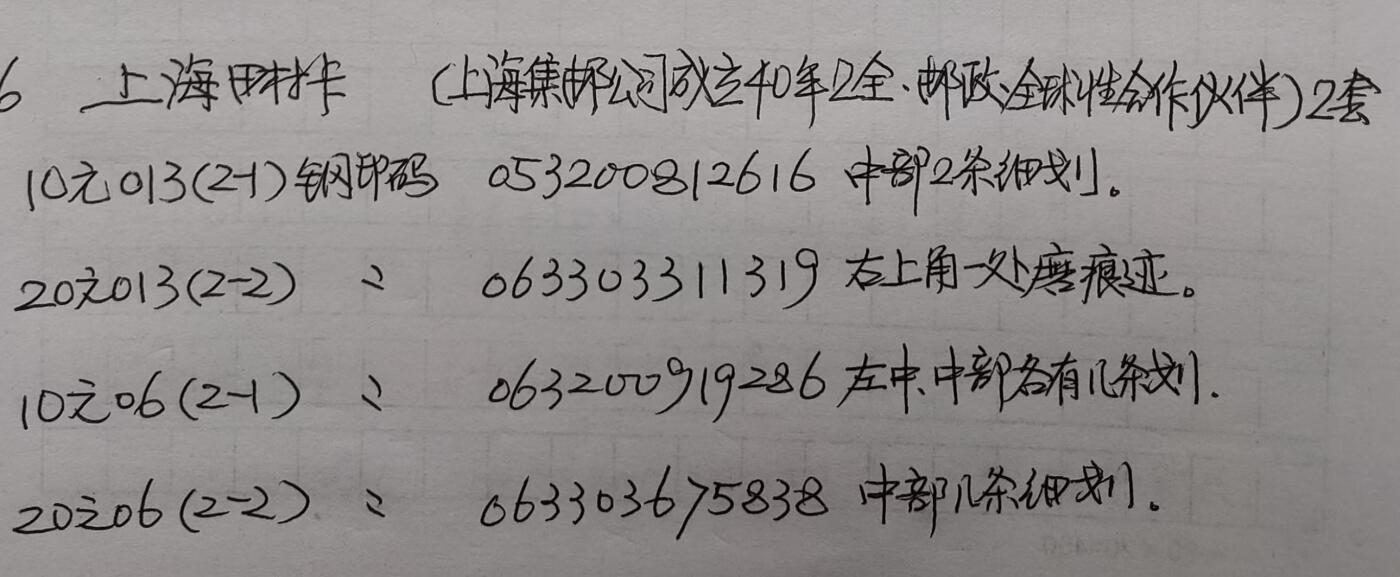 6 上海田村卡 (上海集邮公司成立40年2全、邮政全球性合作伙伴)2套
10元013(2-1)钢印码 053200812616 中部2条细划。
20元013(2-2) 〃 063303311319 右上角一处磨痕迹。
10元06(2-1) 〃 063200919286 左中、中部各有几条划.
20元06(2-2) 〃 063303675838 中部几条细划。